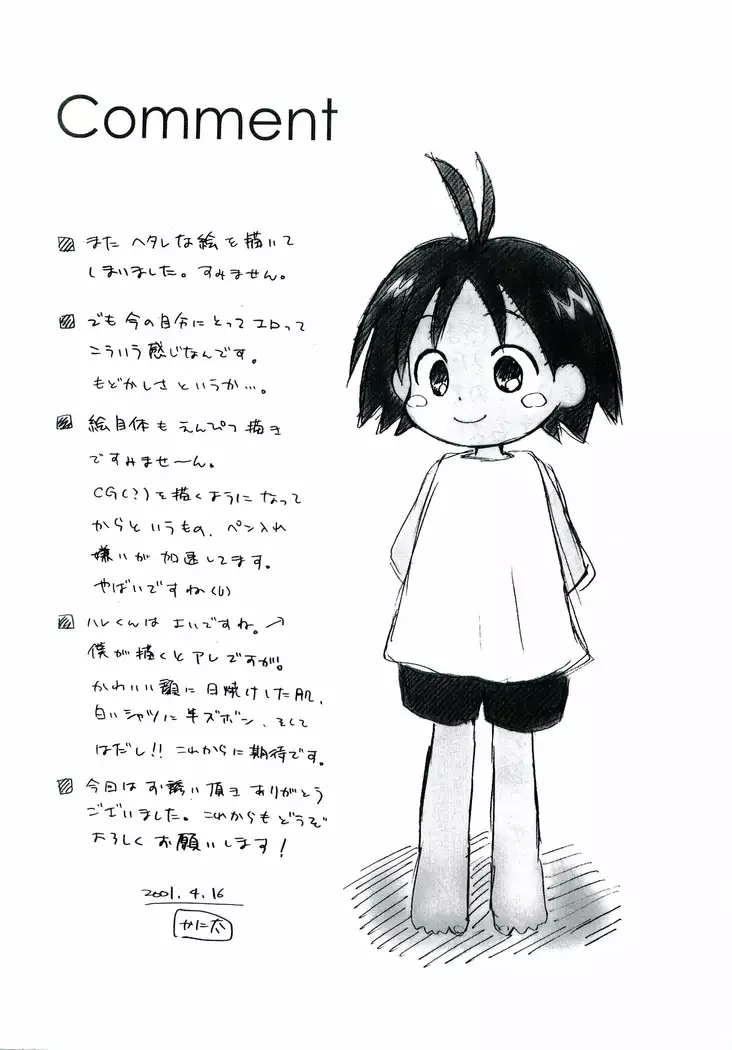 Comment
また ヘタレな絵を描いて
しまいました。すみません。
でも 今の自分にとって エロって
こういう感じなんです。
もどかしさ というか…。
絵自体も えんぴつ描き
ですみませーん。
CG(?)を描くようになって
からというもの、ペン入れ
嫌いが 加速してます。
やばいですね
ハレくんは エいですね。→
僕が描くとアレですが。
かわいい顔に日焼けした肌、
白いシャツに半ズボン、そして
はだし!! これからに期待です。
今回は お誘い頂き ありがとう
ございました。これからもどうぞ
よろしく お願いします!
2001.4.16
かに太